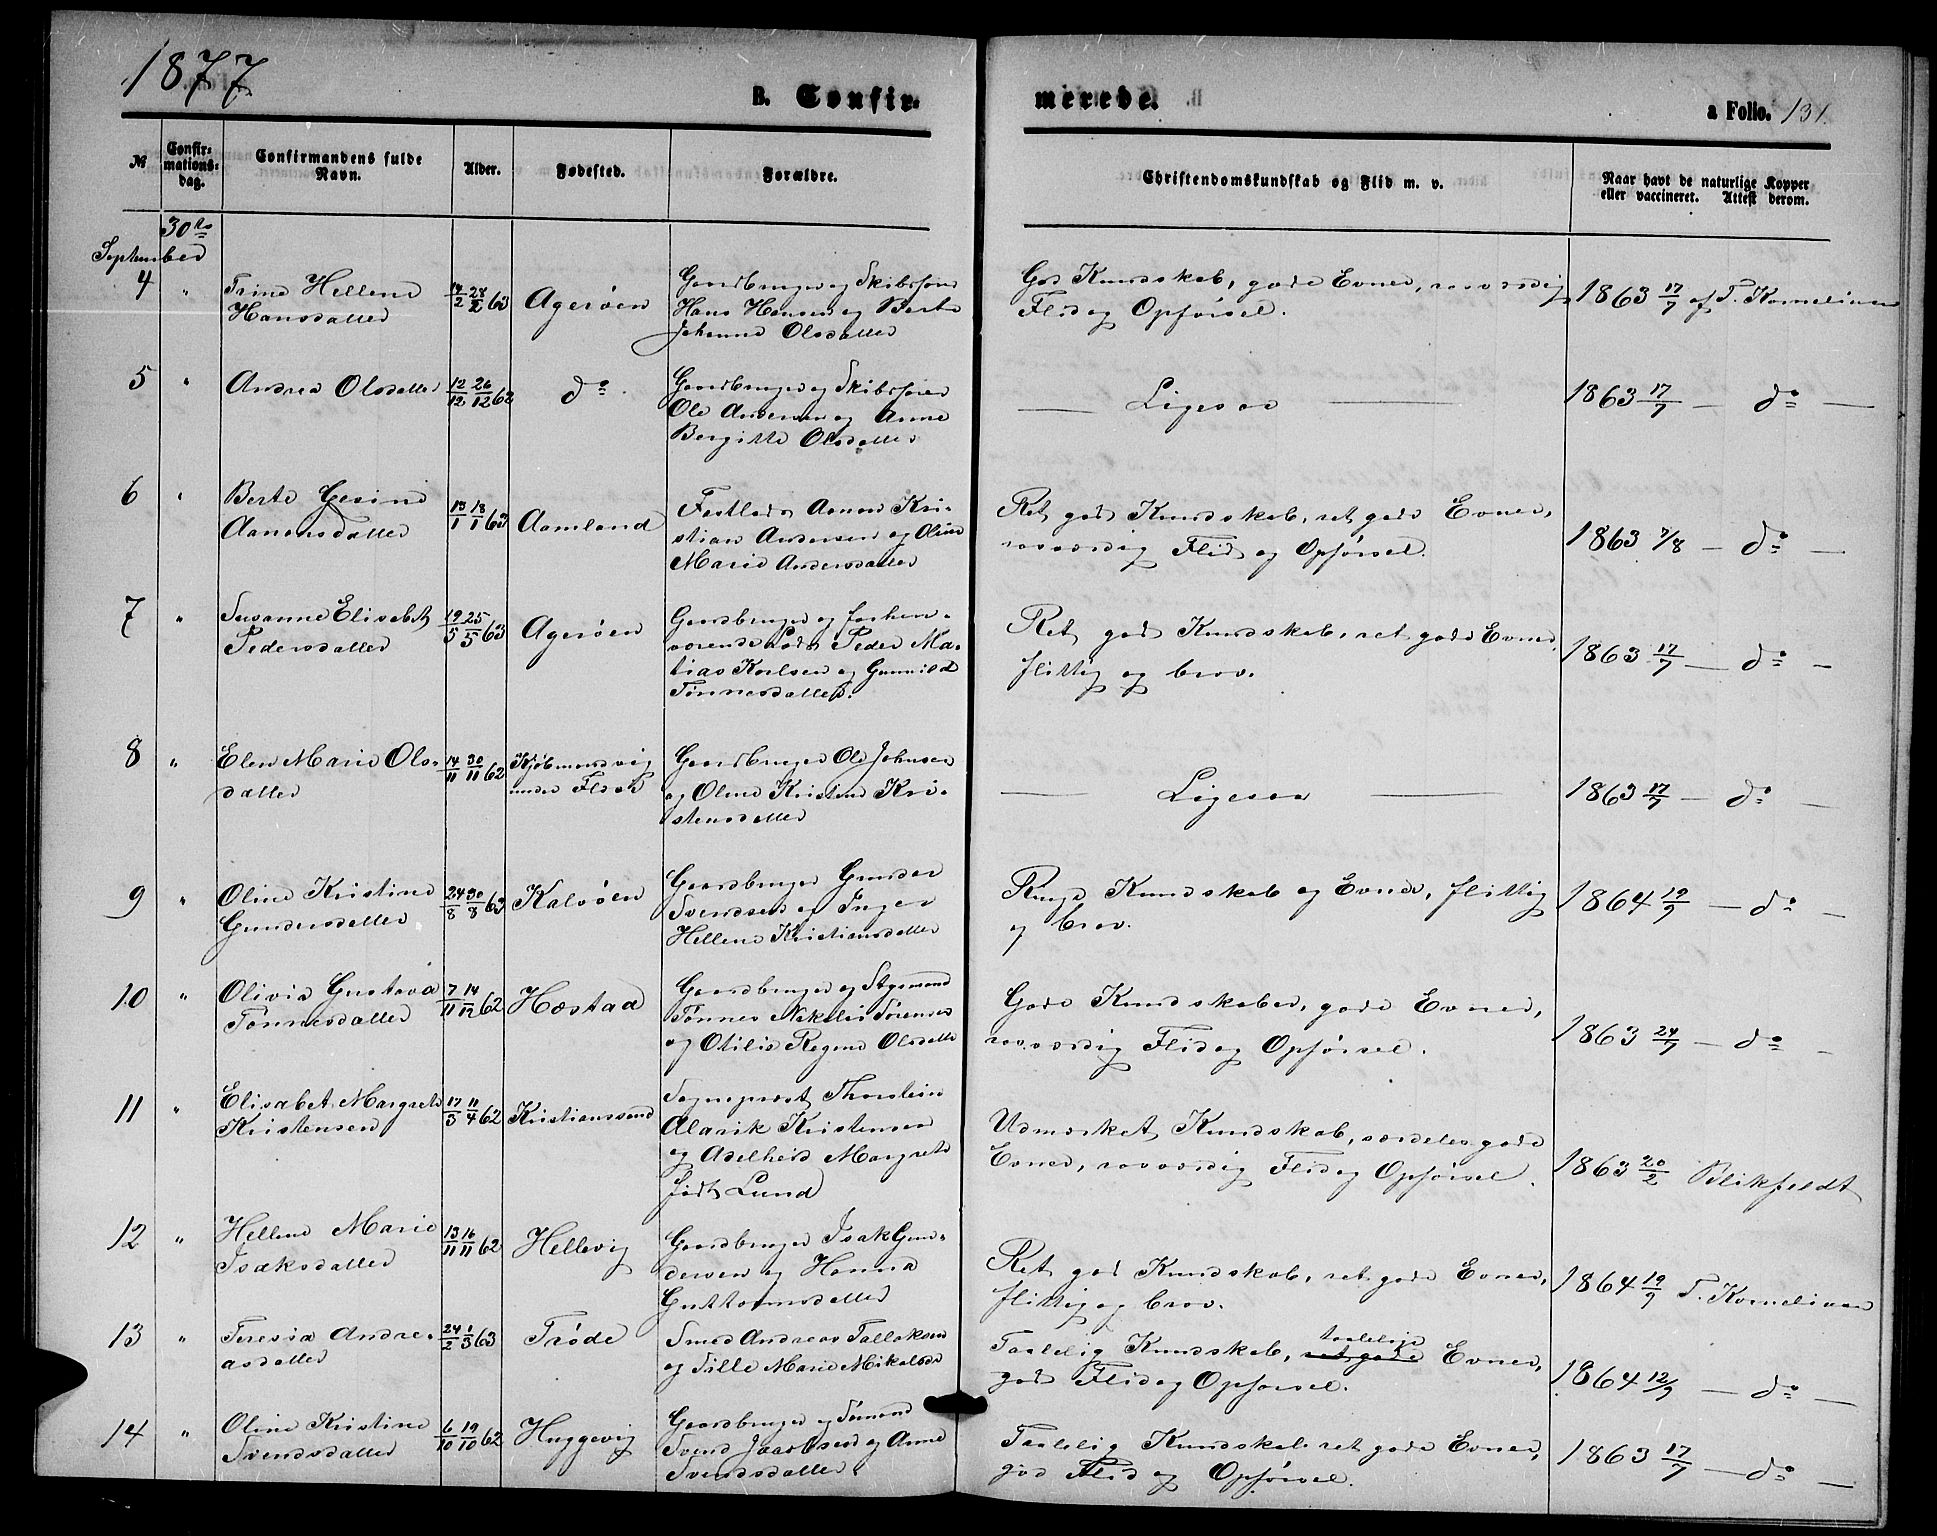 1877
B. Confirmerede.
a Folio. 131.
№ Confirmationsdag. Confirmandens fulde Navn. Alder. Fødested. Forældre. Christendomskundskab og Flid m. v. Naar havt de naturlige Kopper eller vaccineret. Attest derom.
30te
September
4 " Trine Hellene 14/2 24/2 63 Agerøen Gaardbruger og Skibsfører God Kundskab, gode Evner, rosværdig 1863 17/7 af T. Korneliusen
Hansdatter Hans Hansen og Berte Flid og Opførsel.
Johanne Olsdatter
5 " Andrea Olsdatter 12/12 26/12 62 do Gaardbruger og Skibsfører — Ligesaa — 1863 17/7 — do —
Ole Andersen og Anne
Bergitte Olsdatter
6 " Berte Gesine 13/1 18/1 63 Aamland Aanon Kri- Ret god Kundskab, ret gode Evner, 1863 7/8 — do —
Aanonsdatter stian Andersen og Oline rosværdig Flid og Opførsel.
Marie Andersdatter
7 " Susanne Elisabet 19/5 25/5 63 Agerøen Gaardbruger og forhen- Ret god Kundskab, ret gode Evner, 1863 17/7 — do —
Pedersdatter værende Lods Peder Ma- flittig og brav.
tias Karlsen og Gunnild
Tønnesdatter.
8 " Elen Marie Ols- 14/11 30/11 62 Kjøbmandsvig Gaardbruger Ole Johnsen — Ligesaa — 1863 17/7 — do —
datter under og Oline Kristine Kri-
stensdatter
9 " Oline Kristine 24/8 30/8 63 Kalvøen Gaardbruger Gunder Kundskab og Evner, flittig 1864 19/9 — do —
Gundersdatter Svendsen og Inger og brav.
Hellene Kristiansdatter
10 " Olivia Gustava 7/11 14/12 62 Hæstad Gaardbruger og Styrmand Gode Kundskaber, gode Evner, 1863 24/7 — do —
Tønnesdatter Tønnes Nikolai Sørensen rosværdig Flid og Opførsel.
og Otilie Regine Olsdatter
11 " Elisabet Margrete 17/3 11/4 62 Kristianssand Sogneprest Thorstein Udmærket Kundskab, særdeles gode 1863 20/2 Blikfeldt
Kristensen Alarik Kristensen Evner, rosværdig Flid og Opførsel.
og Adelheid Margrete
født Lund
12 " Hellene Marie 13/11 16/11 62 Hellevig Gaardbruger Isak Gun- Ret god Kundskab, ret gode Evner, 1864 19/9 T. Korneliusen
Isaksdatter dersen og Hanna flittig og brav.
Guttormsdatter
13 " Teresia Andre- 24/2 1/3 63 Trøde Smed Andreas Tallaksen Taalelig Kundskab, ret gode taalelige Evner, 1864 12/9 — do —
asdatter og Sille Marie Mikalsdr god Flid og Opførsel.
14 " Oline Kristine 6/10 19/10 62 Huggevig Gaardbruger og Sømand Taalelig Kundskab ret gode Evner, 1863 17/7 — do —
Svendsdatter Svend Jacobsen og Anne god Flid og Opførsel.
Svendsdatter